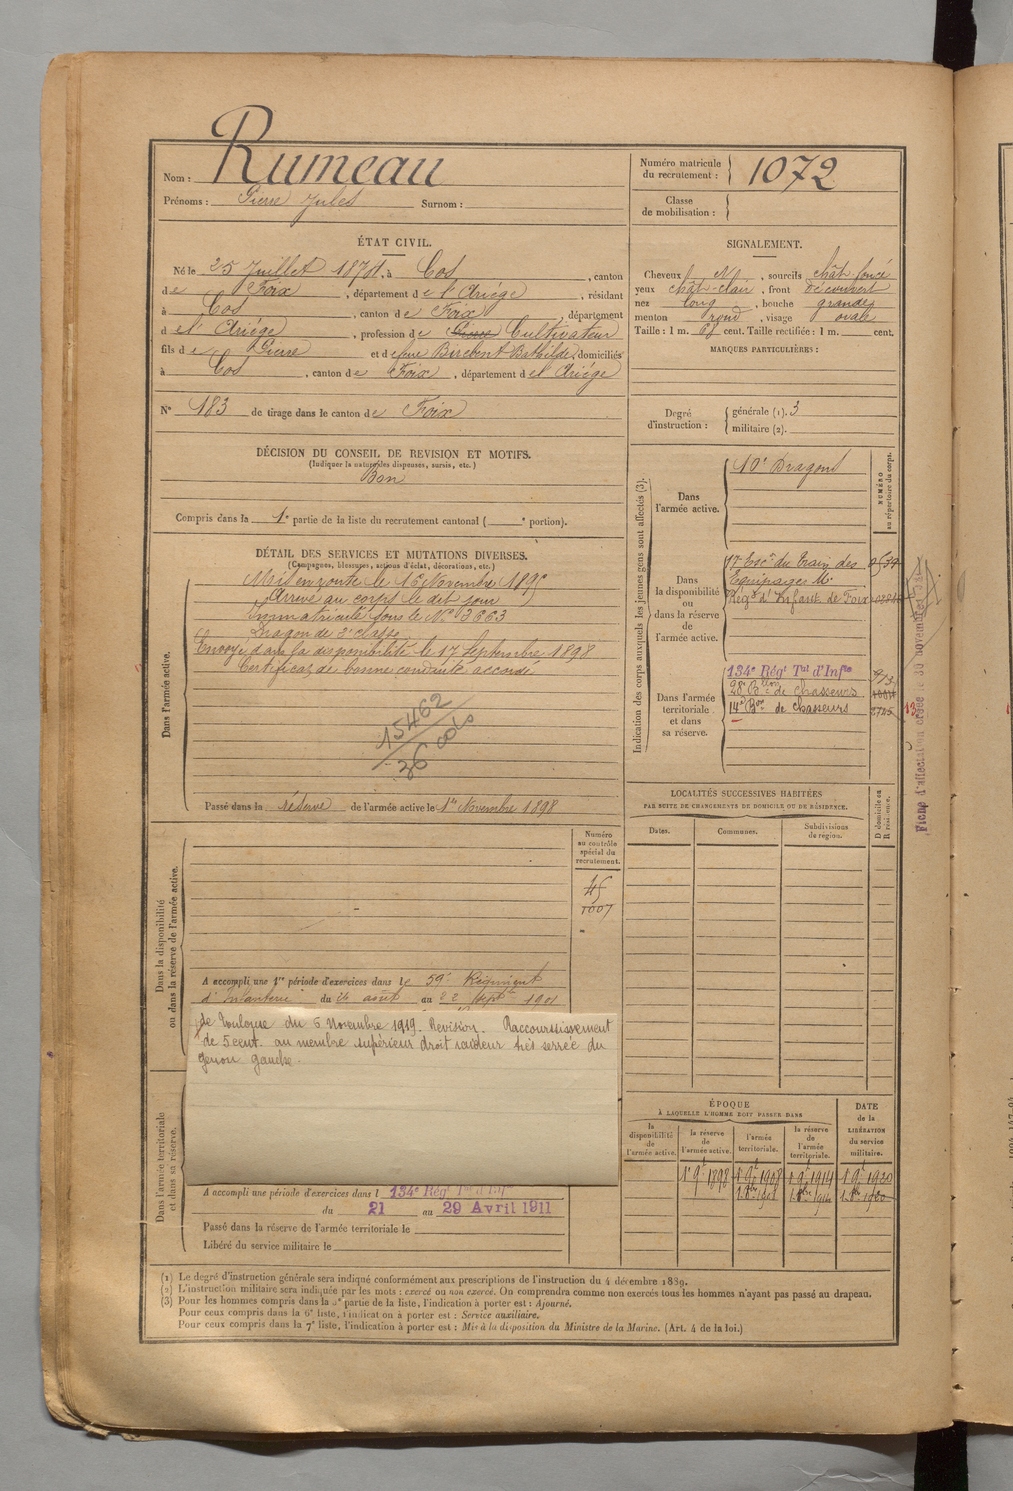 Nom : Rumeau
Prénoms : Pierre Jules Surnom :
Numéro matricule du recrutement : 1072
Classe de mobilisation :
ÉTAT CIVIL.
Né le 25 Juillet 1874, à Cos, canton
de Foix, département de l'Ariége, résidant
à Cos, canton de Foix, département
de l'Ariége, profession de Cultivateur
fils de Pierre et de feue Birebent Bathilde, domiciliés
à Cos, canton de Foix, département de l'Ariége
N° 183 de tirage dans le canton de Foix
SIGNALEMENT.
Cheveux N, sourcils chât foncé
yeux chât-clair, front découvert
nez long, bouche grande
menton rond, visage ovale
Taille : 1 m. 68 cent. Taille rectifiée : 1 m. cent.
MARQUES PARTICULIÈRES :
Degré d'instruction : générale (1). 3
militaire (2).
DÉCISION DU CONSEIL DE REVISION ET MOTIFS.
(Indiquer la nature des dispenses, sursis, etc.)
Bon
Compris dans la 1e partie de la liste du recrutement cantonal ( e portion).
DÉTAIL DES SERVICES ET MUTATIONS DIVERSES.
(Campagnes, blessures, actions d'éclat, décorations, etc.)
Dans l'armée active.
Mis en route le 16 Novembre 1895
Arrivé au corps le dit jour
Immatriculé sous le N° 3663
Dragon de 2e classe
Envoyé dans la disponibilité le 17 Septembre 1898
Certificat de bonne conduite accordé
15462
36 cols
Passé dans la réserve de l'armée active le 1er Novembre 1898
Indication des corps auxquels les jeunes gens sont affectés (3).
NUMÉRO au répertoire du corps.
Dans l'armée active.
10e Dragons
Dans la disponibilité ou dans la réserve de l'armée active.
17e Esc. du train des
Equipages M.
Reg. d'Infant de Foix
Dans l'armée territoriale et dans sa réserve.
134e Régt Tal d'Infie
28e Blon de Chasseurs
14e Bon de Chasseurs
Fiche d'affectation créée le 30 novembre
LOCALITÉS SUCCESSIVES HABITÉES
PAR SUITE DE CHANGEMENTS DE DOMICILE OU DE RÉSIDENCE.
Dates. Communes. Subdivisions de région. D domicile ou R résidence.
Numéro au contrôle spécial du recrutement.
45
1007
Dans la disponibilité ou dans la réserve de l'armée active.
A accompli une 1re période d'exercices dans le 59e Régiment
d'Infanterie du 26 août au 22 Septbre 1901
de Toulouse du 5 Novembre 1919. Revision. Raccourssissement
de 5 cent. au membre supérieur droit raideur très serrée du
genou gauche.
Dans l'armée territoriale et dans sa réserve.
A accompli une période d'exercices dans l 134e Régt Tal d'Infie
du 21 au 29 Avril 1911
Passé dans la réserve de l'armée territoriale le
Libéré du service militaire le
ÉPOQUE
À LAQUELLE L'HOMME DOIT PASSER DANS
la disponibilité de l'armée active. la réserve de l'armée active. l'armée territoriale. la réserve de l'armée territoriale.
DATE de la LIBÉRATION du service militaire.
1 9 1898 1 9 1908 1 9 1914 1 9 1920
(1) Le degré d'instruction générale sera indiqué conformément aux prescriptions de l'instruction du 4 décembre 1889.
(2) L'instruction militaire sera indiquée par les mots : exercé ou non exercé. On comprendra comme non exercés tous les hommes n'ayant pas passé au drapeau.
(3) Pour les hommes compris dans la 2e partie de la liste, l'indication à porter est : Ajourné.
Pour ceux compris dans la 6e liste, l'indication à porter est : Service auxiliaire.
Pour ceux compris dans la 7e liste, l'indication à porter est : Mis à la disposition du Ministre de la Marine. (Art. 4 de la loi.)